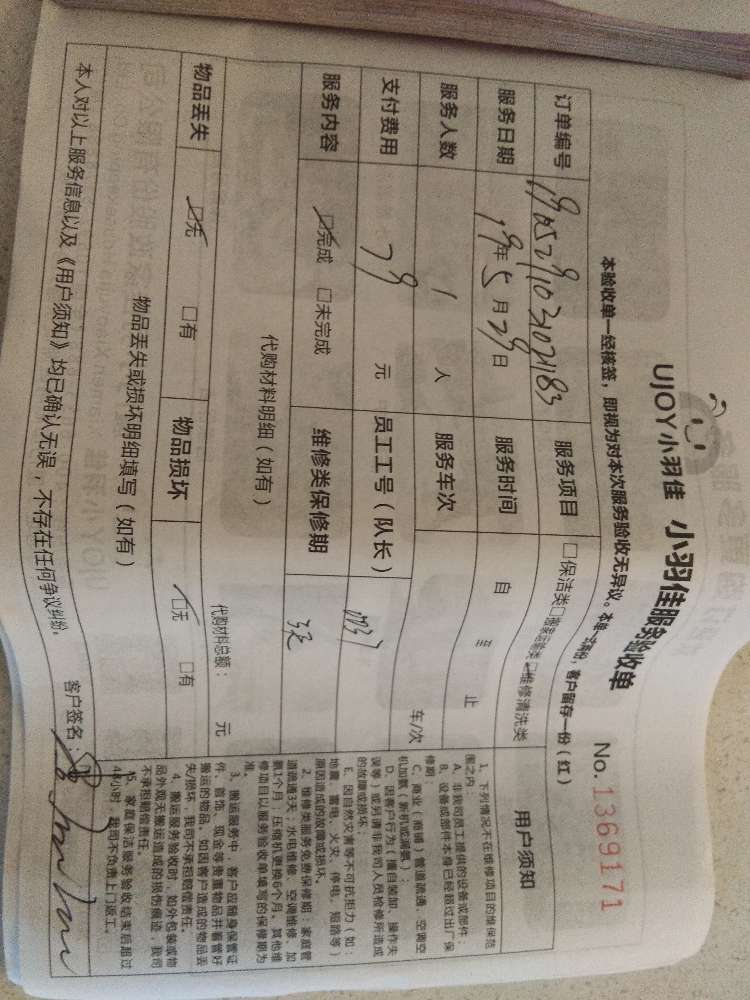 UJOY小羽佳 小羽佳服务验收单 No.1369171
本验收单一经核签，即视为对本次服务验收无异议。本单一式两份，客户留存一份（红）
订单编号 服务项目 □保洁类 □搬家运输类 ☑维修清洗类
服务日期 19年5月29日 服务时间 自 至 止
服务人数 1 人 服务车次 车/次
支付费用 79 元 员工工号（队长）
服务内容 ☑完成 □未完成 维修类保修期
代购材料明细（如有） 代购材料总额： 元
物品丢失 ☑无 □有 物品损坏 ☑无 □有
物品丢失或损坏明细填写（如有）
本人对以上服务信息以及《用户须知》均已确认无误，不存在任何争议纠纷。 客户签名：
用户须知
1、下列情况不在维修项目的维保范
围之内：
A、非我司员工提供的设备或部件；
B、设备或部件本身已经超过出厂保
修期；
C、商业（商铺）管道疏通、空调空
机加氟（新机或漏氟）；
D、因客户行为（擅自装卸、操作失
误等）或另请非我司人员检修所造成
的故障或损坏；
E、因自然灾害等不可抗拒力（如：
地震、雷电、火灾、停电、短路等）
原因造成的故障或损坏。
2、维修类服务免费保修期：家庭管
道疏通3天；水电维修、空调维修、加
氟1个月；压缩机更换6个月。其他维
修项目以服务验收单填写的保修期为
准。
3、搬运服务中，客户应随身保管证
件、首饰、现金等贵重物品并看管好
搬运的物品。如因客户造成的物品丢
失/损坏，我司不承担赔偿责任。
4、搬运服务验收时，如外包装或物
品外观无搬运造成的损伤痕迹，我司
不承担赔偿责任。
5、家庭保洁服务验收结束后超过
48小时，我司不负责上门返工。